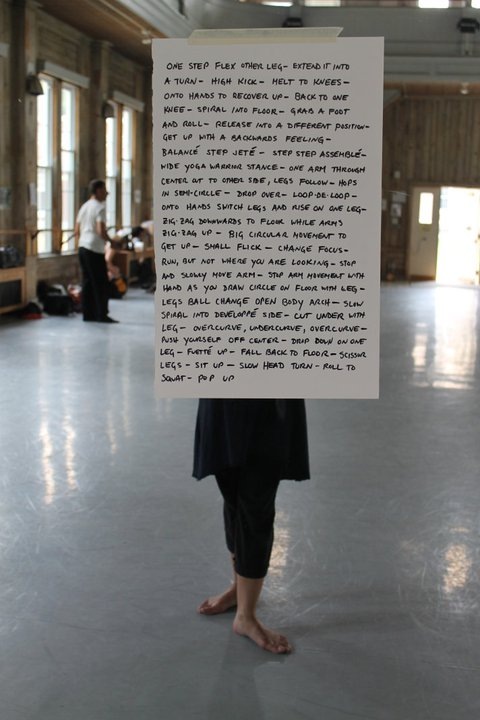 ONE STEP FLEX OTHER LEG- EXTEND IT INTO
A TURN- HIGH KICK- MELT TO KNEES-
ONTO HANDS TO RECOVER UP- BACK TO ONE
KNEE- SPIRAL INTO FLOOR- GRAB A FOOT
AND ROLL- RELEASE INTO A DIFFERENT POSITION-
GET UP WITH A BACKWARDS FEELING-
BALANCÉ STEP JETÉ - STEP STEP ASSEMBLÉ-
WIDE YOGA WARRIOR STANCE- ONE ARM THROUGH
CENTER AT TO OTHER SIDE, LEGS FOLLOW- HOPS
IN SEMI-CIRCLE- DROP OVER- LOOP-DE-LOOP-
ONTO HANDS SWITCH LEGS AND RISE ON ONE LEG-
ZIG-ZAG DOWNWARDS TO FLOOR WHILE ARMS
ZIG-ZAG UP- BIG CIRCULAR MOVEMENT TO
GET UP- SMALL FLICK- CHANGE FOCUS-
RUN, BUT NOT WHERE YOU ARE LOOKING- STOP
AND SLOWLY MOVE ARM- STOP ARM MOVEMENT WITH
HAND AS YOU DRAW CIRCLE ON FLOOR WITH LEG-
LEGS BALL CHANGE OPEN BODY ARCH- SLOW
SPIRAL INTO DEVELOPPÉ SIDE- CUT UNDER WITH
LEG- OVERCURVE, UNDERCURVE, OVERCURVE-
PUSH YOURSELF OFF CENTER- DRIP DOWN ON ONE
LEG- FUETTÉ UP- FALL BACK TO FLOOR- SCISSOR
LEGS- SIT UP- SLOW HEAD TURN- ROLL TO
SQUAT- POP UP